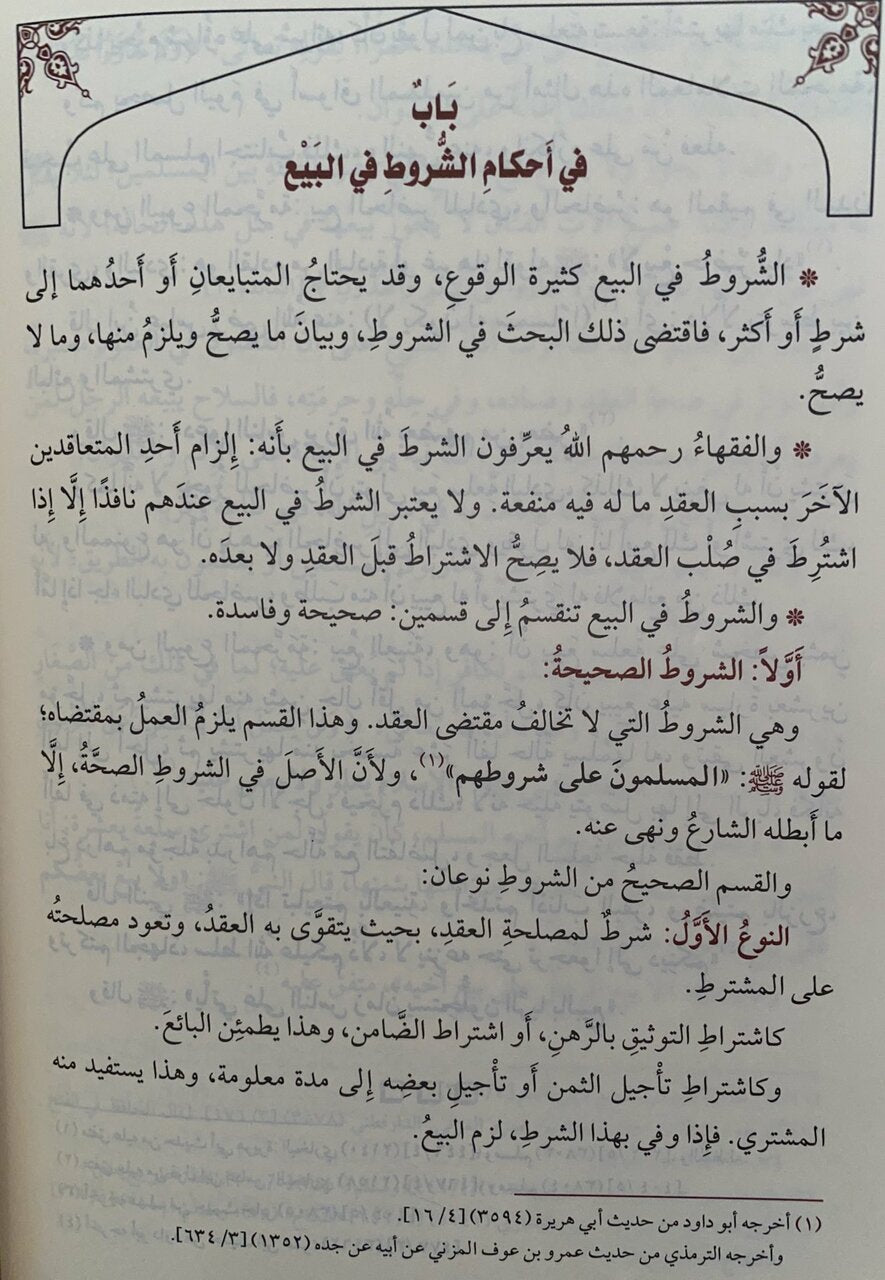 بَابٌ
في أَحكامِ الشُّروطِ في البَيْع
❋ الشُّروطُ في البيع كثيرة الوقوعِ، وقد يحتاجُ المتبايعانِ أَو أَحدُهما إلى
شرطٍ أَو أَكثر، فاقتضى ذلك البحثَ في الشروطِ، وبيانَ ما يصحُّ ويلزمُ منها، وما لا
يصحُّ.
❋ والفقهاءُ رحمهم اللهُ يعرِّفون الشرطَ في البيع بأَنه: إِلزام أَحدِ المتعاقدين
الآخَرَ بسببِ العقدِ ما له فيه منفعة. ولا يعتبر الشرطُ في البيع عندَهم نافذًا إِلَّا إِذا
اشتُرِطَ في صُلْب العقد، فلا يصِحُّ الاشتراطُ قبلَ العقدِ ولا بعدَه.
❋ والشروطُ في البيع تنقسمُ إِلى قسمين: صحيحة وفاسدة.
أَوَّلاً: الشروطُ الصحيحةُ:
وهي الشروطُ التي لا تخالفُ مقتضى العقد. وهذا القسم يلزمُ العملُ بمقتضاه؛
لقوله ﷺ: «المسلمونَ على شروطهم»(١)، ولأَنَّ الأَصلَ في الشروطِ الصحَّةُ، إِلَّا
ما أَبطله الشارعُ ونهى عنه.
والقسم الصحيحُ من الشروطِ نوعان:
النوعُ الأَوَّلُ: شرطٌ لمصلحةِ العقدِ، بحيث يتقوَّى به العقدُ، وتعود مصلحتُه
على المشترطِ.
كاشتراطِ التوثيقِ بالرَّهنِ، أَو اشتراط الضَّامن، وهذا يطمئِن البائعَ.
وكاشتراطِ تأْجيل الثمن أَو تأْجيلِ بعضِه إِلى مدة معلومة، وهذا يستفيد منه
المشتري. فإِذا وفي بهذا الشرطِ، لزم البيعُ.
(١) أخرجه أبو داود من حديث أبي هريرة (٣٥٩٤) [٤/ ١٦].
وأخرجه الترمذي من حديث عمرو بن عوف المزني عن أبيه عن جده (١٣٥٢) [٣/ ٦٣٤].